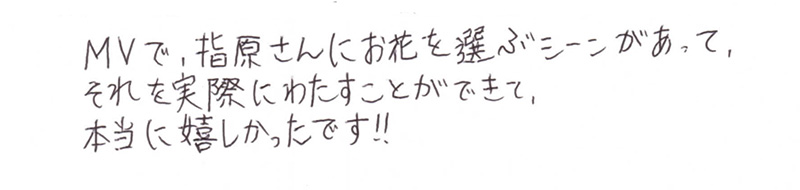 MVで、指原さんにお花を選ぶシーンがあって、
それを実際にわたすことができて、
本当に嬉しかったです!!